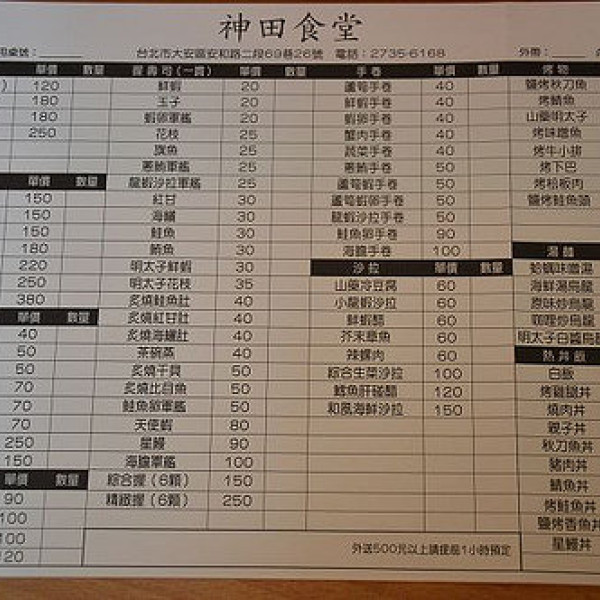 神田食堂
台北市大安區安和路二段69巷26號 電話：2735-6168 外帶：
單價 數量 握壽司(一貫) 單價 數量 手卷 單價 數量 烤物
120 鮮蝦 20 蘆筍手卷 40 鹽烤秋刀魚
180 玉子 20 鮮蝦手卷 40 烤鯖魚
180 蝦卵軍艦 20 蝦卵手卷 40 山藥明太子
250 花枝 25 蟹肉手卷 40 烤味噌魚
旗魚 25 蔬菜手卷 40 烤牛小排
蔥鮪軍艦 25 蔥鮪手卷 50 烤下巴
單價 數量 龍蝦沙拉軍艦 25 蘆筍蝦手卷 50 烤松板肉
150 紅甘 30 蘆筍蝦卵手卷 50 鹽烤鮭魚頭
150 海鱺 30 龍蝦沙拉手卷 50
150 鮭魚 30 鮭魚卵手卷 90
180 鮪魚 30 海膽手卷 100 湯麵
220 明太子鮮蝦 30 沙拉 單價 數量 蛤蠣味噌湯
250 明太子花枝 35 山藥冷豆腐 60 海鮮湯烏龍
380 炙燒鮭魚肚 40 小龍蝦沙拉 60 原味炒烏龍
單價 數量 炙燒紅甘肚 40 鮮蝦醋 60 咖哩炒烏龍
40 炙燒海鱺肚 40 芥末章魚 60 明太子白醬烏龍
50 茶碗蒸 40 辣螺肉 60 熱丼飯
50 炙燒干貝 50 綜合生菜沙拉 100 白飯
70 炙燒比目魚 50 鱈魚肝 醋 120 烤雞腿丼
70 鮭魚卵軍艦 50 和風海鮮沙拉 150 燒肉丼
70 天使蝦 80 親子丼
250 星鰻 90 秋刀魚丼
150 海膽軍艦 100 豬肉丼
單價 數量 綜合握(6顆) 150 鯖魚丼
90 精緻握(6顆) 250 烤鮭魚丼
100 鹽烤香魚丼
100 外送500元以上請提前1小時預定 星鰻丼
120